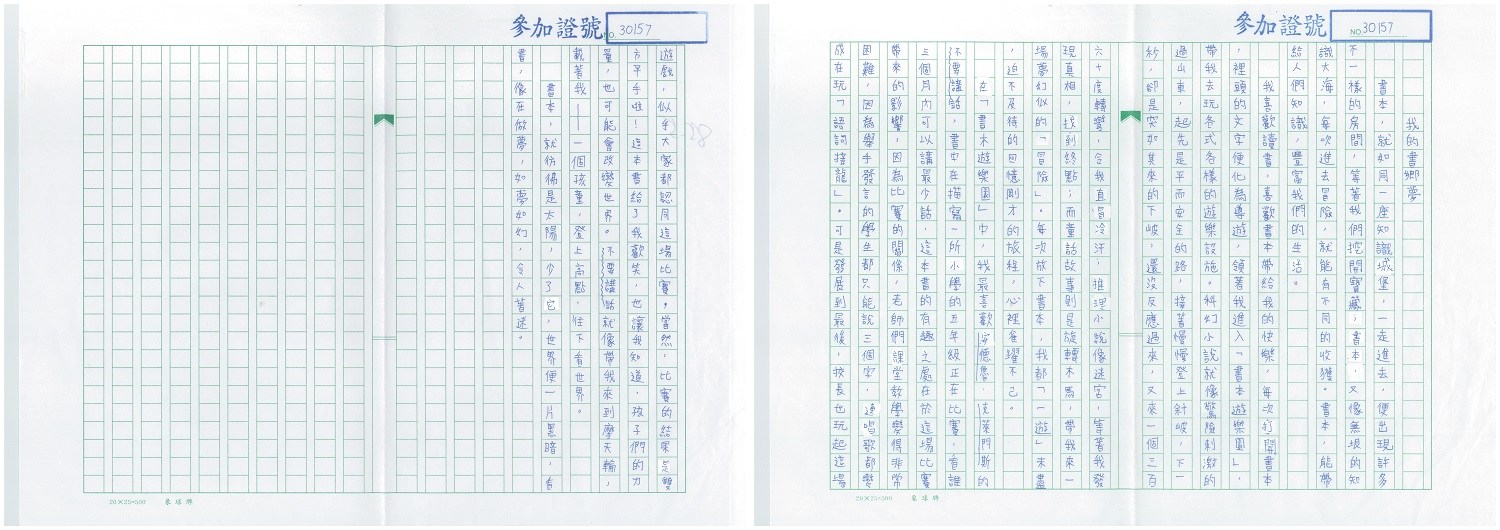 參加證號
NO. 30157
我的書鄉夢
書本，就如同一座知識城堡，一走進去，便出現許多
不一樣的房間，等著我們挖開寶藏；書本，又像無垠的知
識大海，每次進去冒險，就能有不同的收獲。書本，能帶
給人們知識，豐富我們的生活。
我喜歡讀書，喜歡書本帶給我的快樂，每次打開書本
，裡頭的文字便化為導遊，領著我進入「書本遊樂園」，
帶我去玩各式各樣的遊樂設施。科幻小說就像驚險刺激的
過山車，起先是平而安全的路，接著慢慢登上斜坡，下一
秒，卻是突如其來的下坡，還沒反應過來，又來一個三百
六十度轉彎，令我直冒冷汗；推理小說像迷宮，等著我發
現真相，找到終點；而童話故事則是旋轉木馬，帶我來一
場夢幻似的「冒險」。每次放下書本，我都「一遊」未盡
，迫不及待的回憶剛才的旅程，心裡雀躍不已。
在「書本遊樂園」中，我最喜歡安德魯．克萊門斯的
不要講話，書中在描寫一所小學的五年級正在比賽，看誰
三個月內可以講最少話，這本書的有趣之處在於這場比賽
帶來的影響，因為比賽的關係，老師們課堂教學變得非常
困難，因為舉手發言的學生都只能說三個字，連唱歌都變
成在玩「語詞接龍」。可是發展到最後，校長也玩起這場
參加證號
NO. 30157
遊戲，似乎大家都認同這場比賽。當然，比賽的結果是雙
方平手啦！這本書給了我歡笑，也讓我知道，孩子們的力
量，也可能會改變世界。不要講話就像帶我來到摩天輪，
載著我——一個孩童，登上高點，往下看世界。
書本，就彷彿是太陽，少了它，世界便一片黑暗，看
書，像在做夢，如夢如幻，令人著迷。
20×25=500 象球牌
20×25=500 象球牌